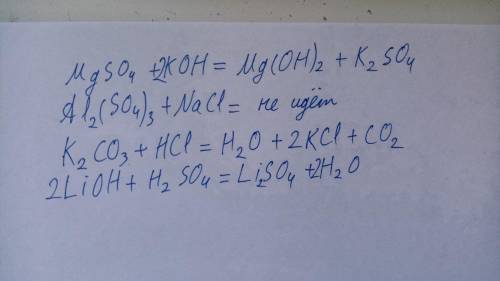 MgSO₄ + 2KOH = Mg(OH)₂ + K₂SO₄
Al₂(SO₄)₃ + NaCl = не идёт
K₂CO₃ + HCl = H₂O + 2KCl + CO₂
2LiOH + H₂SO₄ = Li₂SO₄ + 2H₂O